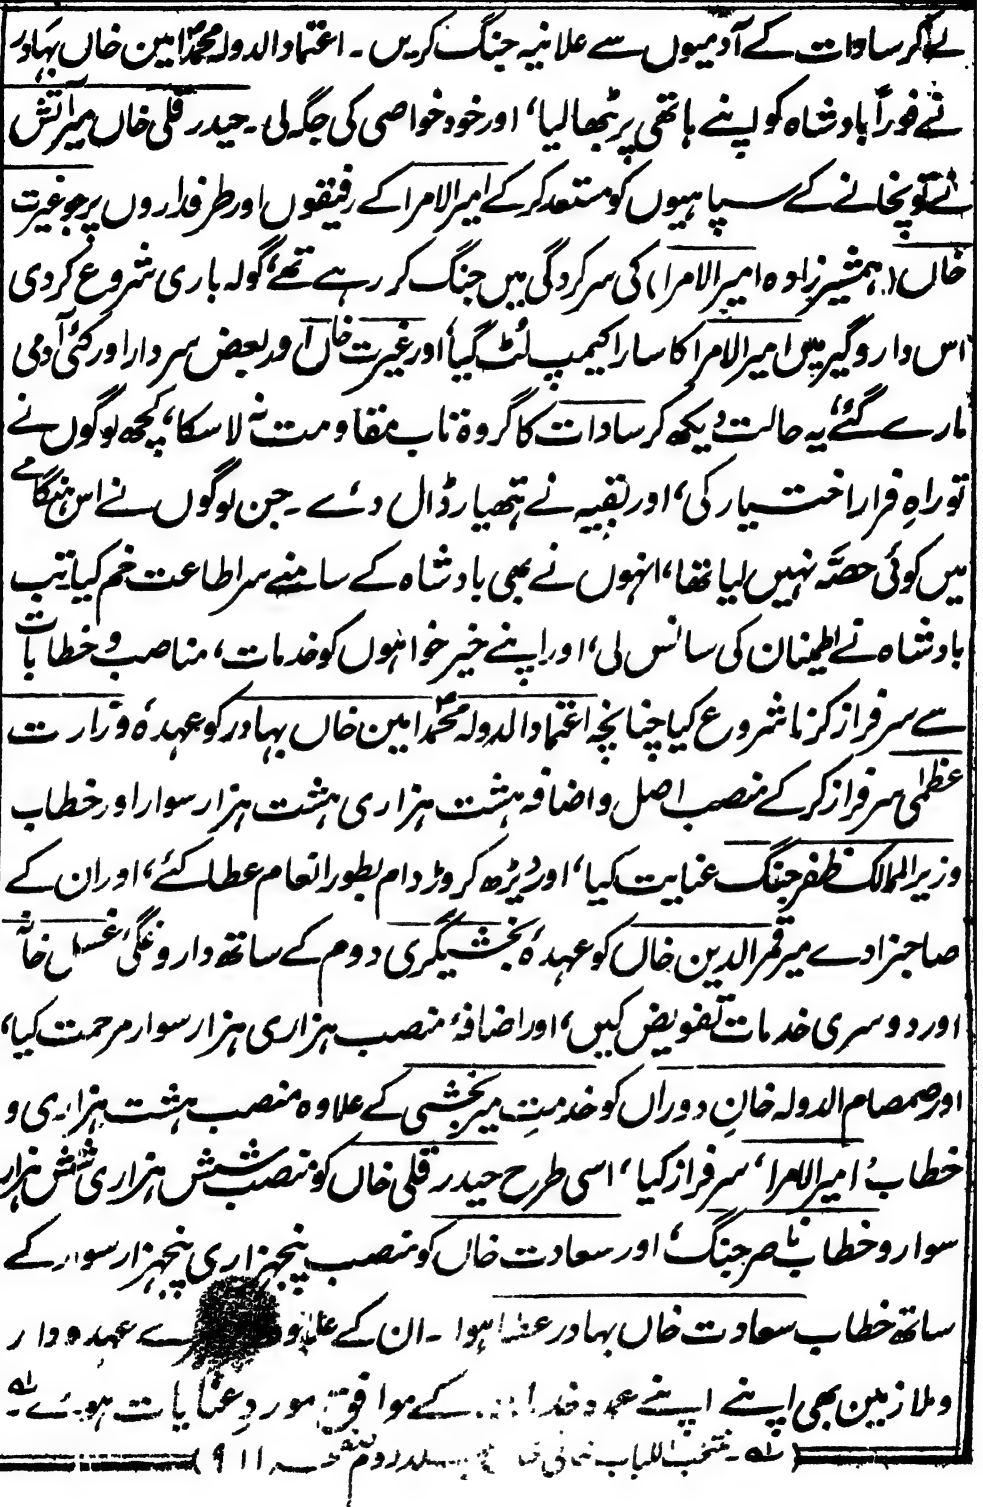 لے کر سادات کے آدمیوں سے علانیہ جنگ کریں۔ اعتماد الدولہ محمدؐ امین خاں بہادر
نے فوراً بادشاہ کو اپنے ہاتھی پر بٹھا لیا، اور خود خواصی کی جگہ لی۔ حیدر قلی خاں میر آتش
نے توپخانے کے سپاہیوں کو مستعد کر کے امیر الامرا کے رفیقوں اور طرفداروں پر جو غیرت
خاں (ہمشیر زادہ امیر الامرا) کی سرکردگی میں جنگ کر رہے تھے، گولہ باری شروع کر دی
اس دار و گیر میں امیر الامرا کا سارا کیمپ لُٹ گیا، اور غیرت خاں اور بعض سردار اور کئی آدمی
مارے گئے، یہ حالت دیکھ کر سادات کا گروہ تاب مقاومت نہ لا سکا، کچھ لوگوں نے
تو راہِ فرار اختیار کی، اور بقیہ نے ہتھیار ڈال دئے۔ جن لوگوں نے اس ہنگامے
میں کوئی حصّہ نہیں لیا تھا، انہوں نے بھی بادشاہ کے سامنے سر اطاعت خم کیا تب
بادشاہ نے اطمینان کی سانس لی، اور اپنے خیر خواہوں کو خدمات، مناصب و خطابات
سے سرفراز کرنا شروع کیا چنانچہ اعتماد الدولہ محمدؐ امین خاں بہادر کو عہدۂ وزارت
عظمٰی سرفراز کر کے منصب اصل و اضافہ ہشت ہزاری ہشت ہزار سوار اور خطاب
وزیر الممالک ظفر جنگ عنایت کیا، اور ڈیڑھ کروڑ دام بطور انعام عطا کئے، اور ان کے
صاحبزادے میر قمر الدین خاں کو عہدۂ بخشیگری دوم کے ساتھ داروغگیٔ غسل خانہ
اور دوسری خدمات تفویض کیں، اور اضافۂ منصب ہزاری ہزار سوار مرحمت کیا،
اور صمصام الدولہ خانِ دوراں کو خدمتِ میر بخشی کے علاوہ منصب ہشت ہزاری و
خطاب امیر الامرا، سرفراز کیا، اسی طرح حیدر قلی خاں کو منصب شش ہزاری شش ہزار
سوار و خطاب ناصر جنگ، اور سعادت خاں کو منصب پنجہزاری پنجہزار سوار کے
ساتھ خطاب سعادت خاں بہادر عطا ہوا۔ ان کے علاوہ عہدہ دار
و ملازمین بھی اپنے اپنے عہدہ و کے موافق مورد عنایات ہوئے۔ لہ
(لہ۔ منتخب اللباب دوم ۹۱۱)